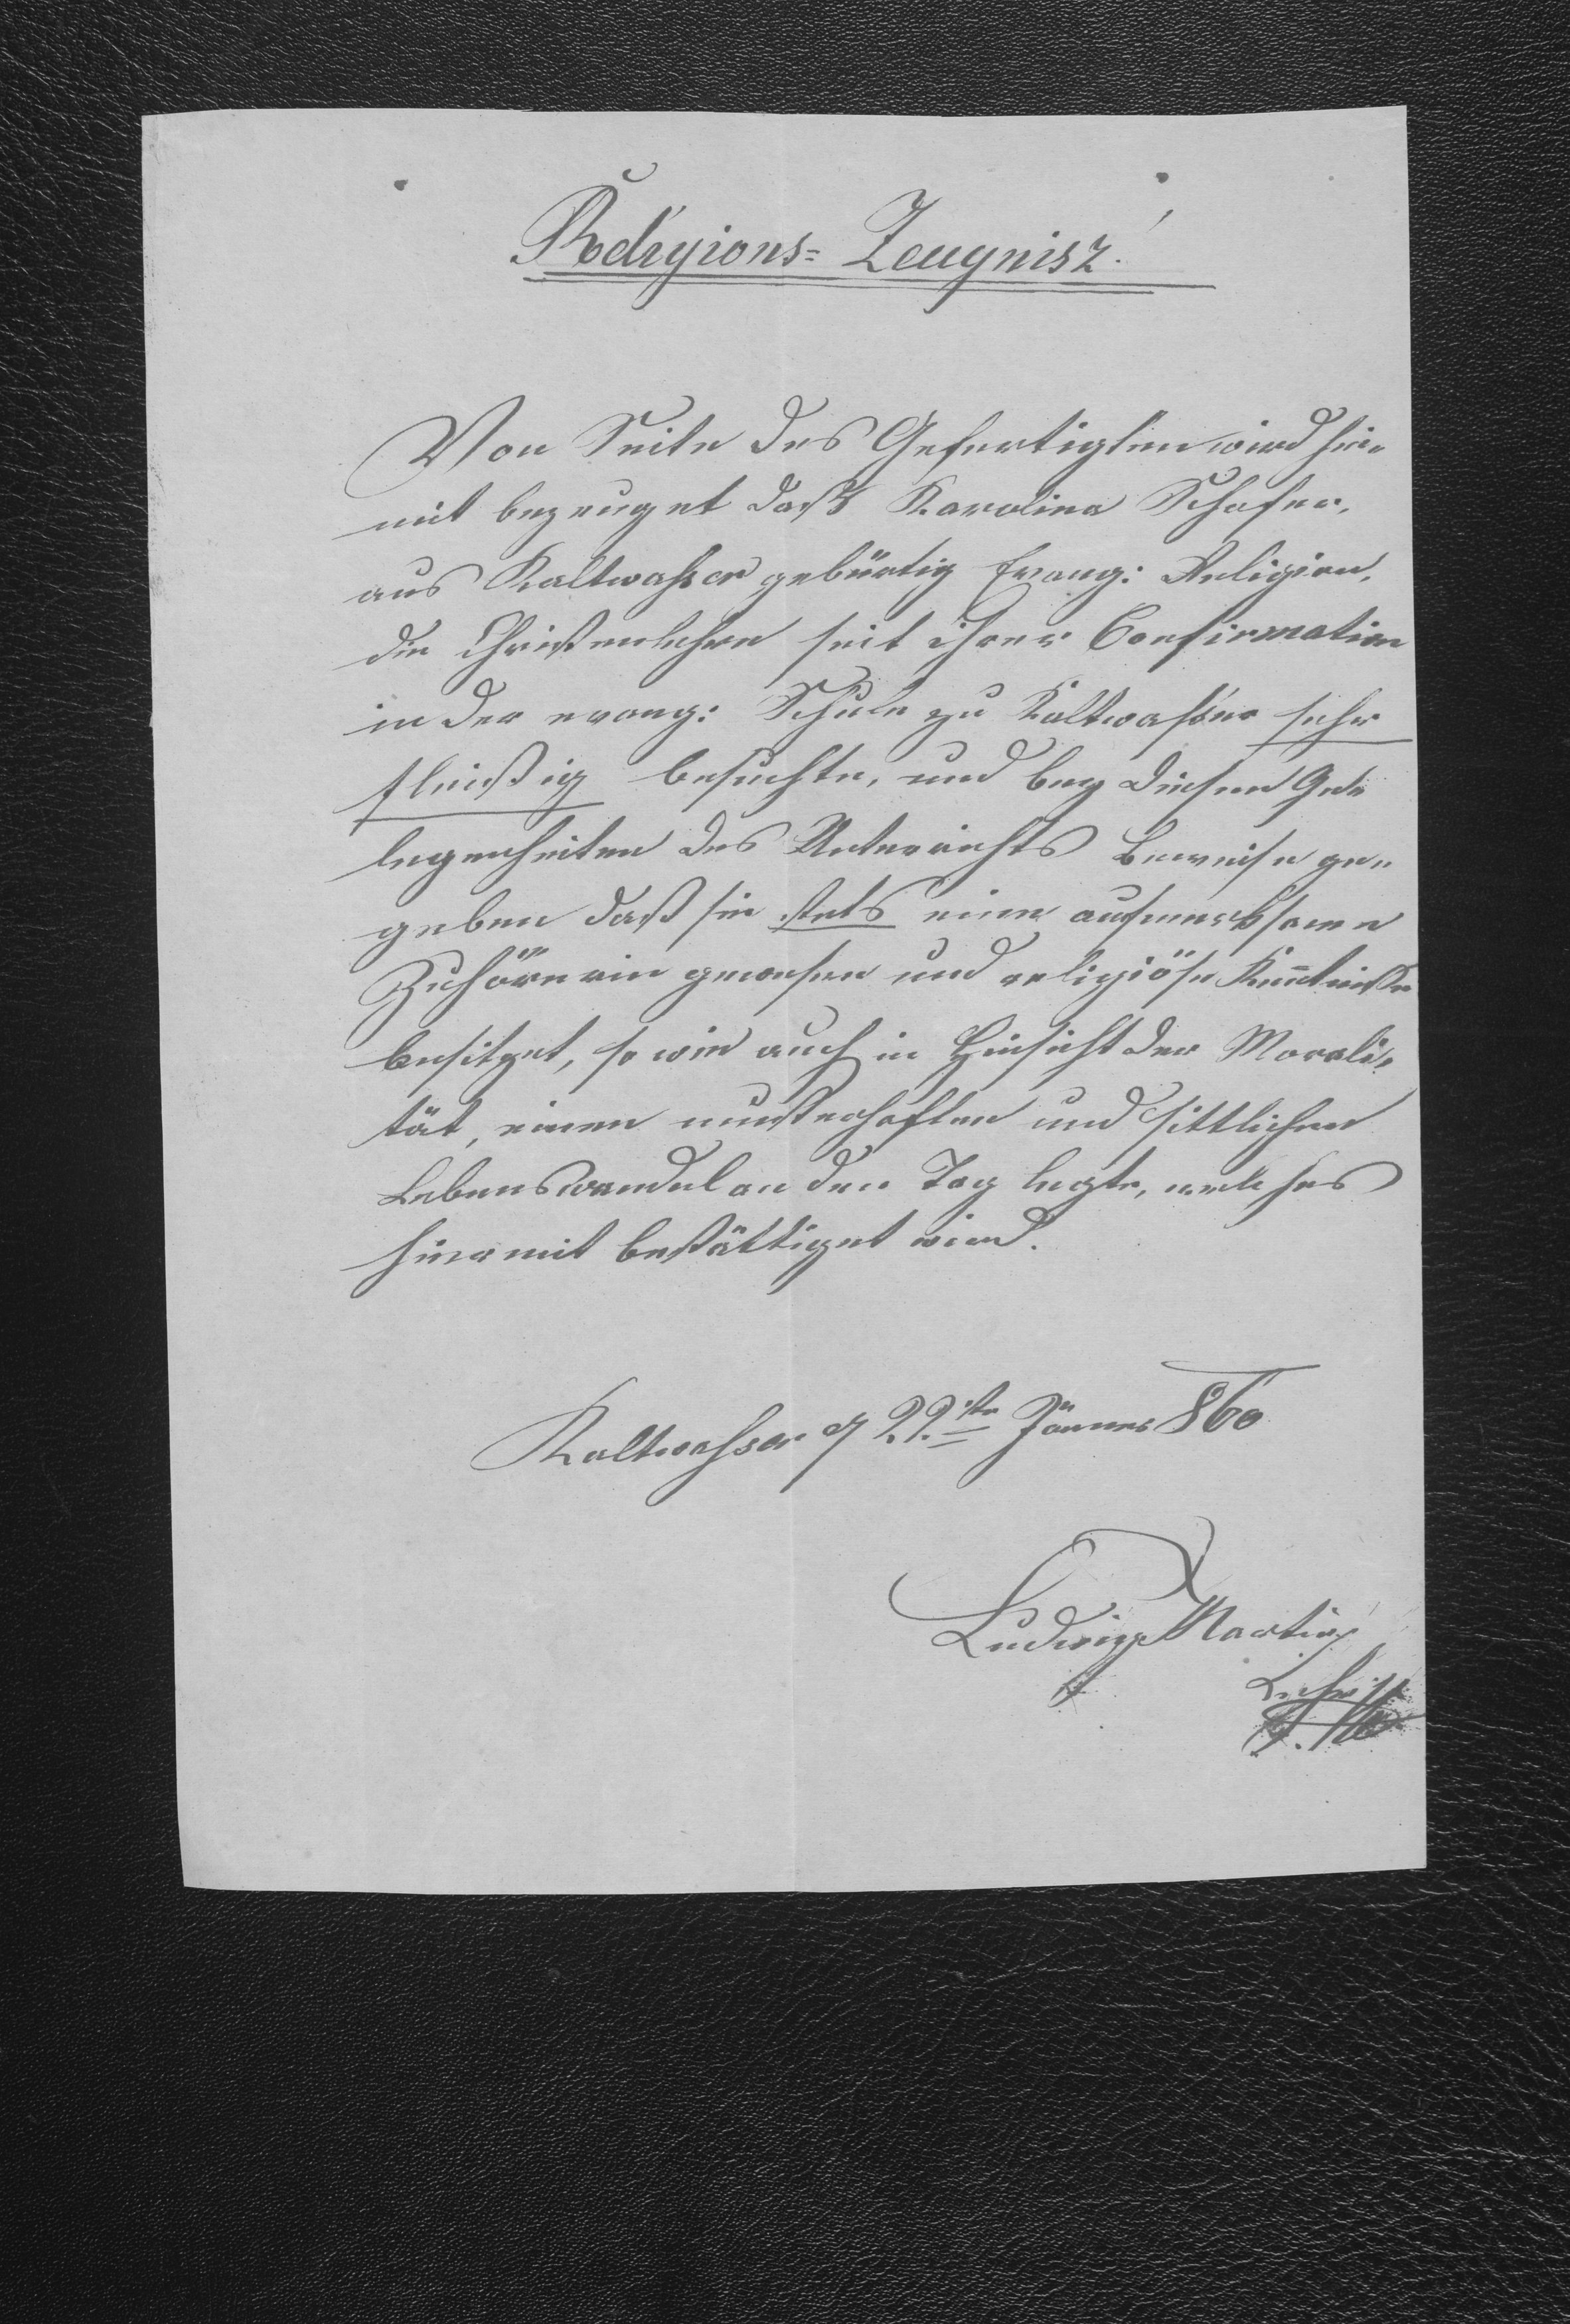 Religions= Zeugnisz.
Von Seite des Gefertigten wird hie=
mit bezeuget dasz Karolina Schafer,
aus Kaltwasser gebürtig Evang: Religion,
die Christenlehre seit ihrer Confirmation
in der evang: Schule zu Kaltwasser sehr
fleißig besuchte, und bey diesen Ge=
legenheiten des Unterrichts Beweise ge=
geben daß sie stets eine aufmerksame
Zuhörerin gewesen und religiöse Kenntnisse
besitzet, so wie auch in Hinsicht der Morali=
tät, einen musterhaften und sittlichen
Lebenswandel an den Tag legte, welches
hiermit bestättiget wird.
Kaltwasser 22.te Jänner 860
Ludwig Martin
Lehrer